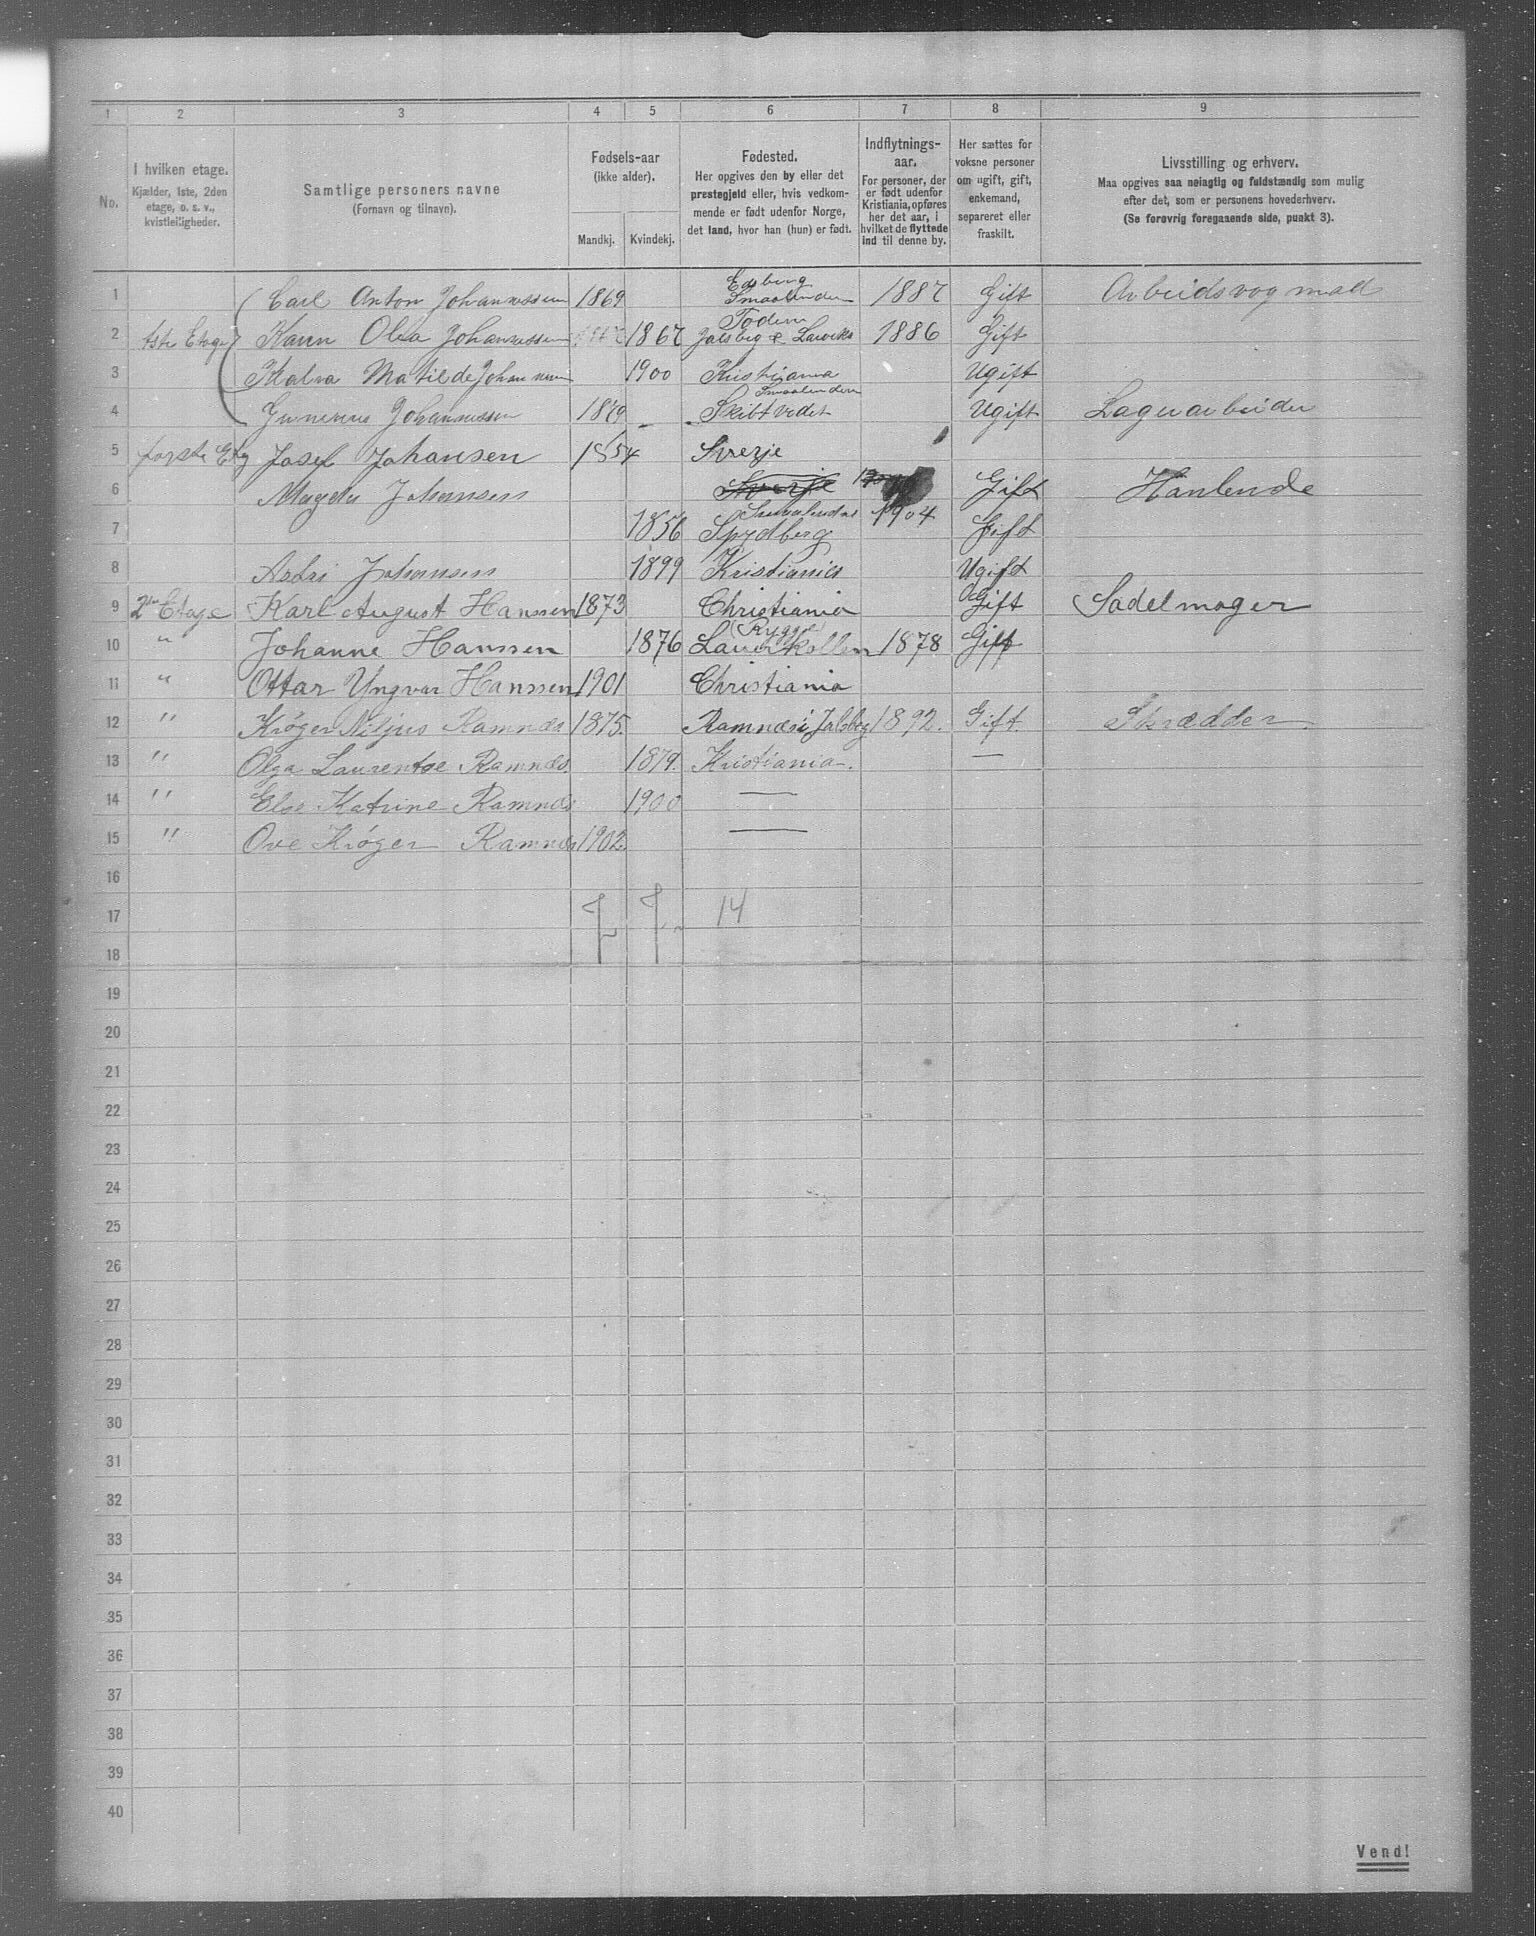 1 2 3 4 5 6 7 8 9
No.
I hvilken etage.
Kjælder, 1ste, 2den
etage, o. s. v.,
kvistleiligheder.
Samtlige personers navne
(Fornavn og tilnavn).
Fødsels-aar
(ikke alder).
Mandkj. Kvindekj.
Fødested.
Her opgives den by eller det
prestegjeld eller, hvis vedkom-
mende er født udenfor Norge,
det land, hvor han (hun) er født.
Indflytnings-
aar.
For personer, der
er født udenfor
Kristiania, opføres
her det aar, i
hvilket de flyttede
ind til denne by.
Her sættes for
voksne personer
om ugift, gift,
enkemand,
separeret eller
fraskilt.
Livsstilling og erhverv.
Maa opgives saa nøiagtig og fuldstændig som mulig
efter det, som er personens hovederhverv.
(Se forøvrig foregaaende side, punkt 3).
1 Carl Anton Johannessen 1869 Edsberg Smaalenden 1887 Gift
2 1ste Etage Karen Olea Johannessen 1867 Jalsberg Larviks 1886 Gift
3 Matilde Johannessen 1900 Kristiania Ugift
4 Johannessen Skibtvedet Smaalenden Ugift Lagerarbeider
5 første Etg Josef Johansen 1854 Sverje
6 Magda Johansen Sverje Gift Hanlende
7 1856 Smaalendne Spydberg 1904 Gift
8 Astri Johansen 1899 Kristiania Ugift
9 2den Etage Karl August Hanssen 1873 Christiania Gift Sadelmager
10 " Johanne Hanssen 1876 (Rygge) Larkollen 1878 Gift
11 " Ottar Yngvar Hanssen 1901 Christiania
12 " Krøger Niljus Ramnæs 1875. Ramnæs i Jalsbrg 1892. Gift. Skrædder
13 " Olga Laurentse Ramnæs. 1879. Kristiania. —
14 " Else Katrine Ramnæs 1900 —
15 " Ove Krøger Ramnæs 1902. —
16
17 7 7 14
18
19
20
21
22
23
24
25
26
27
28
29
30
31
32
33
34
35
36
37
38
39
40
Vend!